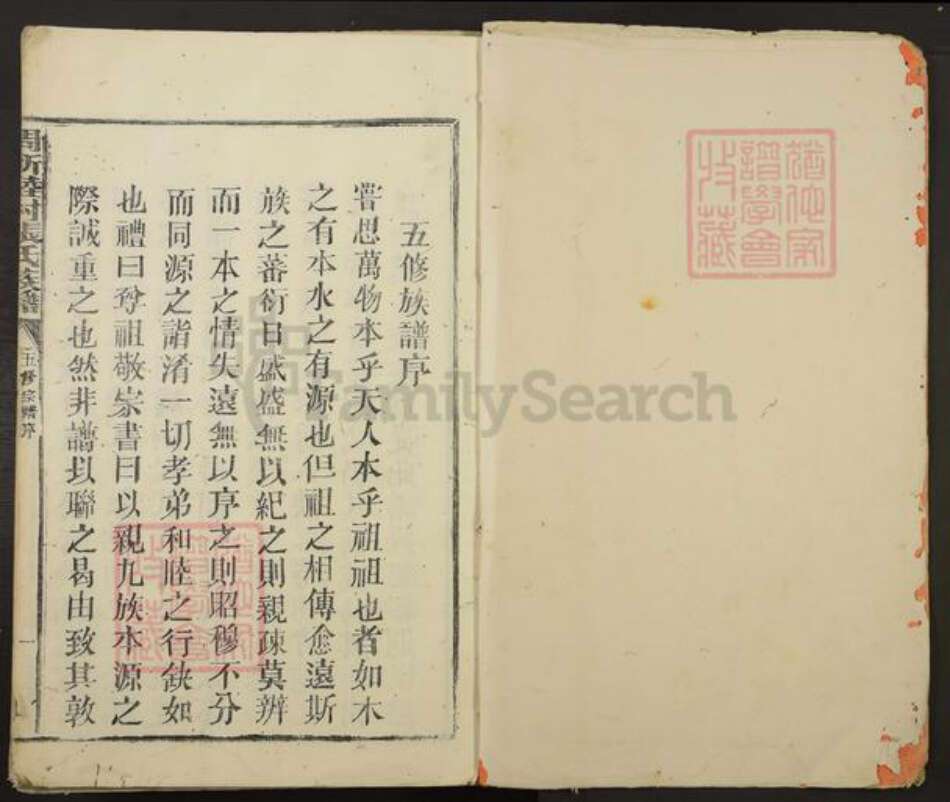 五修族譜序
嘗思萬物本乎天人本乎祖祖也者如木
之有本水之有源也但祖之相傳愈遠斯
族之蕃衍日盛盛無以紀之則親疎莫辨
而一本之情失遠無以序之則昭穆不分
而同源之誼淆一切孝弟和睦之行缺如
也禮曰尊祖敬宗書曰以親九族本源之
際誠重之也然非譜以聯之曷由致其敦
張氏族譜
五修宗譜序
一
FamilySearch